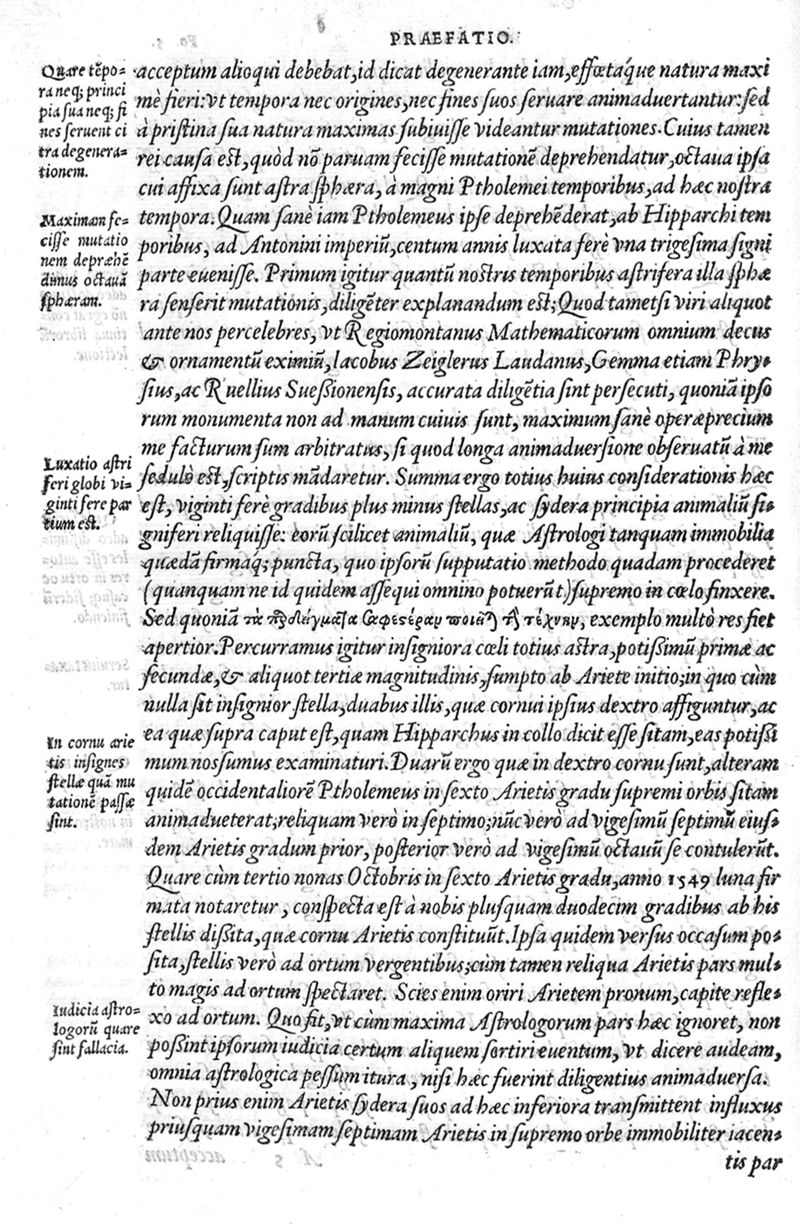 PRAEFATIO.
Quare tēpo-
ra neq; princi
pia ſua neq; fi
nes ſeruent ci
tra degenera-
tionem.
Maximam fe-
ciſſe mutatio
nem depræhē
dimus octauā
ſphæram.
Luxatio aſtri
feri globi vi-
ginti fere par
tium eſt.
In cornu arie
tis inſignes
ſtellæ quā mu
tationē paſſæ
ſint.
Iudicia aſtro-
logorū quare
ſint fallacia.
acceptum alioqui debebat, id dicat degenerante iam, effœtáque natura maxi
mè fieri: vt tempora nec origines, nec fines ſuos ſeruare animaduertantur: ſed
à priſtina ſua natura maximas ſubiuiſſe videantur mutationes. Cuius tamen
rei cauſa eſt, quòd nō paruam feciſſe mutationē deprehendatur, octaua ipſa
cui affixa ſunt aſtra ſphæra, à magni Ptholemei temporibus, ad hæc noſtra
tempora. Quam ſanè iam Ptholemeus ipſe deprehēderat, ab Hipparchi tem
poribus, ad Antonini imperiū, centum annis luxata ferè vna trigeſima ſigni
parte eueniſſe. Primum igitur quantū noſtris temporibus aſtrifera illa ſphæ
ra ſenſerit mutationis, diligēter explanandum eſt; Quod tametſi viri aliquot
ante nos percelebres, vt Regiomontanus Mathematicorum omnium decus
& ornamentū eximiū, Iacobus Zeiglerus Laudanus, Gemma etiam Phry-
ſius, ac Ruellius Sueßionenſis, accurata diligētia ſint perſecuti, quoniā ipſo
rum monumenta non ad manum cuiuis ſunt, maximum ſanè operæprecium
me facturum ſum arbitratus, ſi quod longa animaduerſione obſeruatū à me
ſedulò eſt, ſcriptis mādaretur. Summa ergo totius huius conſiderationis hæc
eſt, viginti ferè gradibus plus minus ſtellas, ac ſydera principia animaliū ſi-
gniferi reliquiſſe: eorū ſcilicet animaliū, quæ Aſtrologi tanquam immobilia
quædā firmaq; puncta, quo ipſorū ſupputatio methodo quadam procederet
(quanquam ne id quidem aſſequi omnino potuerūt) ſupremo in cœlo finxere.
Sed quoniā τὰ παραδείγματα σαφεστέραν ποιεῖ τὴν τέχνην, exemplo multò res fiet
apertior. Percurramus igitur inſigniora cœli totius aſtra, potißimū primæ ac
ſecundæ, & aliquot tertiæ magnitudinis, ſumpto ab Ariete initio; in quo cùm
nulla ſit inſignior ſtella, duabus illis, quæ cornui ipſius dextro affiguntur, ac
ea quæ ſupra caput eſt, quam Hipparchus in collo dicit eſſe ſitam, eas potißi
mum nos ſumus examinaturi. Duarū ergo quæ in dextro cornu ſunt, alteram
quidē occidentaliorē Ptholemeus in ſexto Arietis gradu ſupremi orbis ſitam
animadueterat; reliquam verò in ſeptimo; nūc verò ad vigeſimū ſeptimū eiuſ-
dem Arietis gradum prior, poſterior verò ad vigeſimū octauū ſe contulerūt.
Quare cùm tertio nonas Octobris in ſexto Arietis gradu, anno 1549 luna fir
mata notaretur, conſpecta eſt à nobis pluſquam duodecim gradibus ab his
ſtellis dißita, quæ cornu Arietis conſtituūt. Ipſa quidem verſus occaſum po-
ſita, ſtellis verò ad ortum vergentibus; cùm tamen reliqua Arietis pars mul-
to magis ad ortum ſpectaret. Scies enim oriri Arietem pronum, capite refle-
xo ad ortum. Quo fit, vt cùm maxima Aſtrologorum pars hæc ignoret, non
poßint ipſorum iudicia certum aliquem ſortiri euentum, vt dicere audeam,
omnia aſtrologica peſſum itura, niſi hæc fuerint diligentius animaduerſa.
Non prius enim Arietis ſydera ſuos ad hæc inferiora transmittent influxus
priuſquam vigeſimam ſeptimam Arietis in ſupremo orbe immobiliter iacen-
tis par